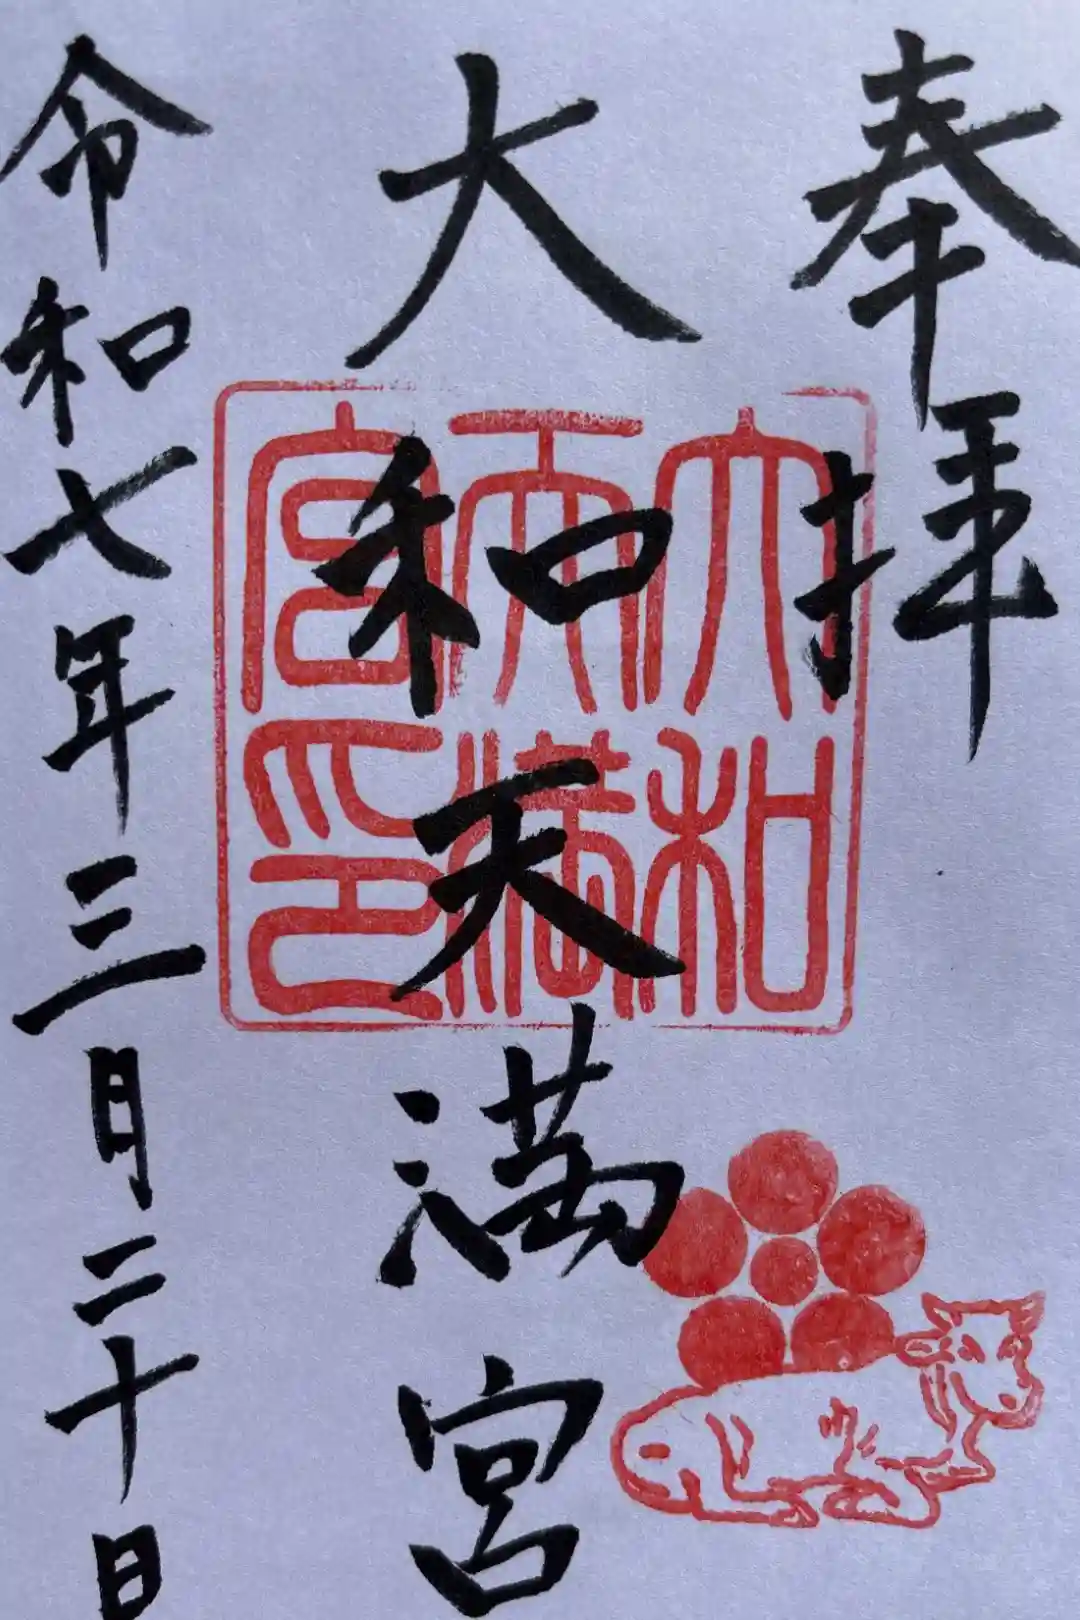 奉拝
大和天満宮
令和七年三月二十日
大和
天満
宮印